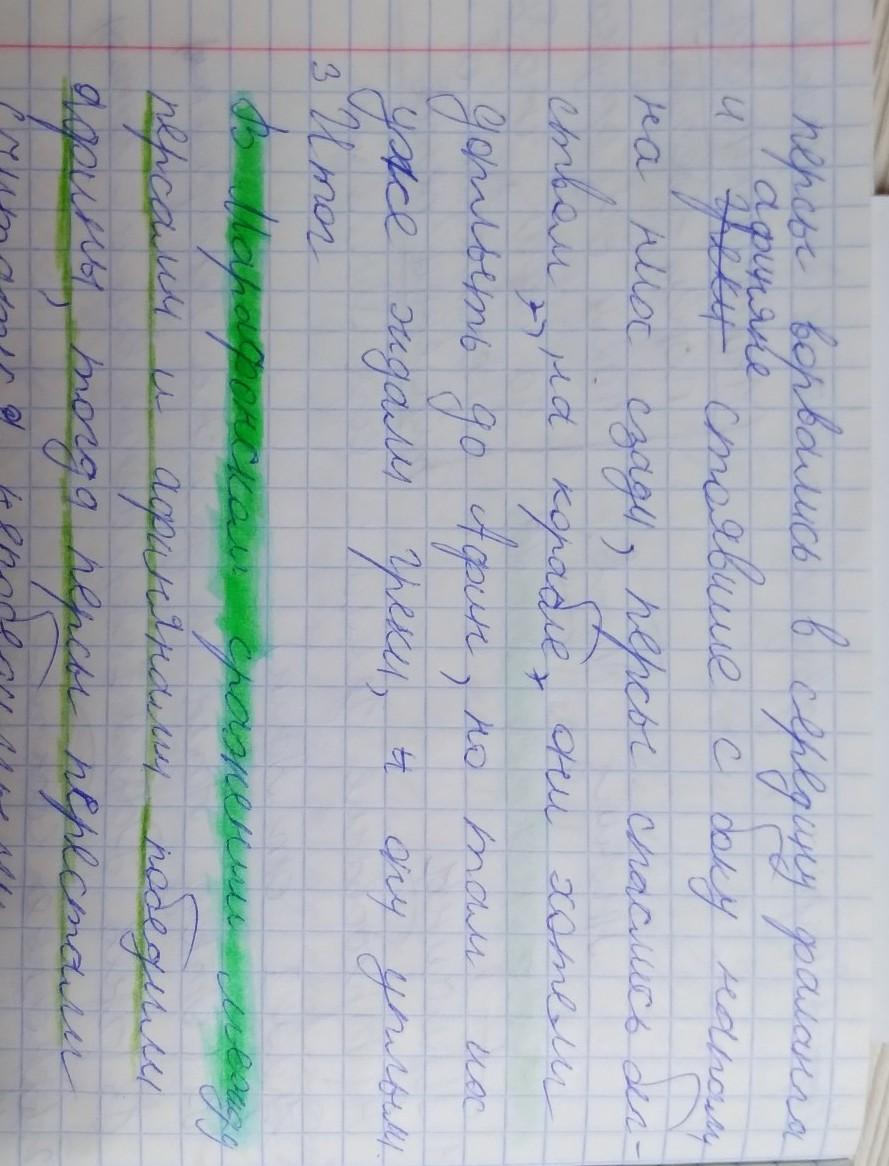 персы ворвались в середину фаланги
афиняне
и греки стоявшие с боку напали
на них сзади, персы спаслись бег-
ством, на корабле, они хотели
доплыть до Афин, но там их
уже ждали греки, и они уплыли.
3 Итог
В Марафонском сражении между
персами и афинянами победили
афины, тогда персы перестали
считаться непобедимыми